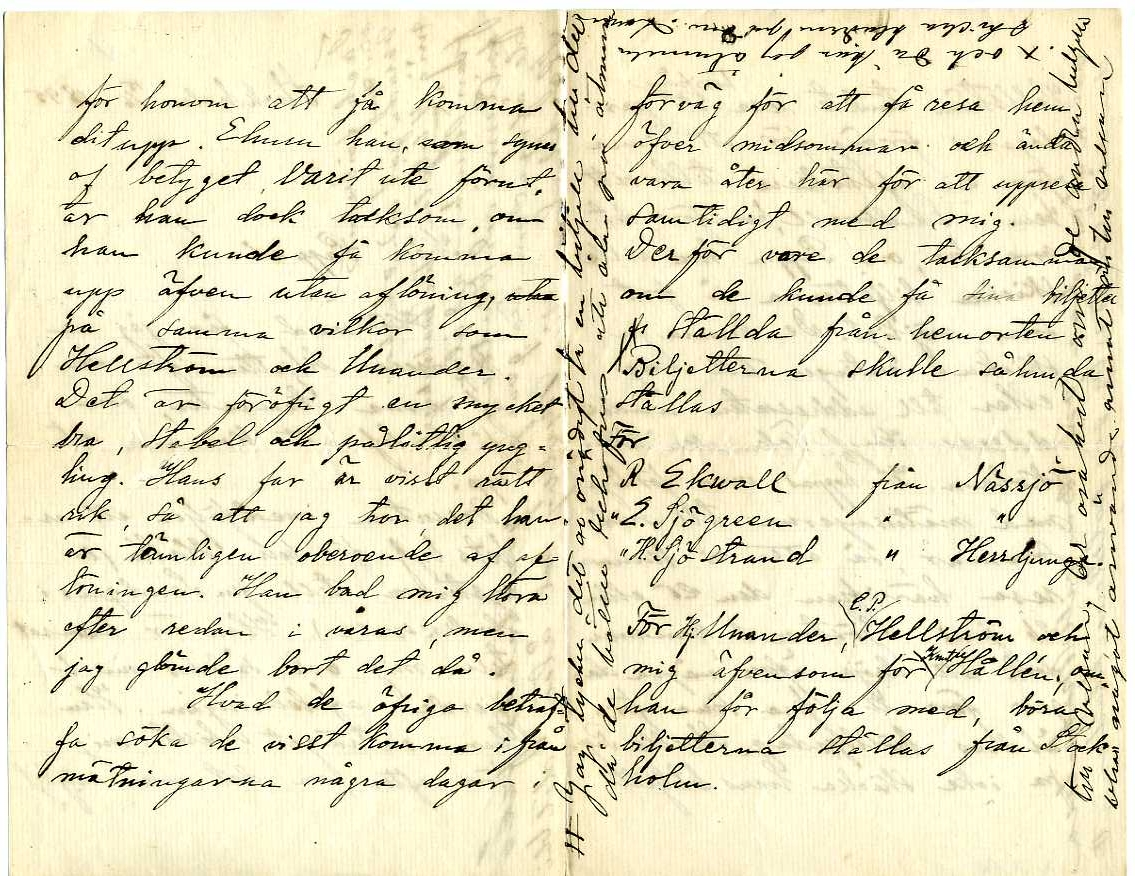 för honom att få komma
dit upp. Ehuru han, som synes
af betyget, varit ute förut,
är han dock tacksam, om
han kunde få komma
upp äfven utan aflöning,
på samma vilkor som
Hellström och Unander.
Det är föröfrigt en mycket
bra, stabel och pålitlig yng-
ling. Hans far är visst rätt
rik, så att jag tror, det han
är tämligen oberoende af af-
löningen. Han bad mig höra
efter redan i våras, men
jag glömde bort det då.
Hvad de öfriga beträf-
fa söka de visst komma ifrån
mätningarna några dagar i
förväg för att få resa hem
öfver midsommar och ändå
vara åter här för att uppresa
samtidigt med mig.
Derför vore de tacksamma
om de kunde få sina biljetter
ställda från hemorten
Biljetterna skulle såhunda
ställas
För
R Ekwall från Nässjö
" E. Sjögreen " "
" H. Sjöstrand " Herrljunga
För Hj Unander, E. P. Hellström och
mig äfvensom för Hållén, om
han får följa med, böra
biljetterna ställas från Stock-
holm.
# Jag tycker det är onödigt ta en biljett till det
de
x och Du kan ju